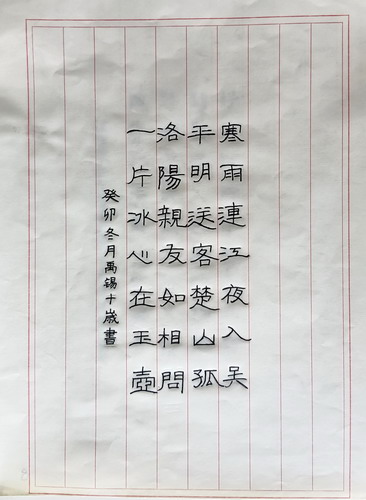 寒雨連江夜入吳
平明送客楚山孤
洛陽親友如相問
一片冰心在玉壺
癸卯冬月禹锡十歲書